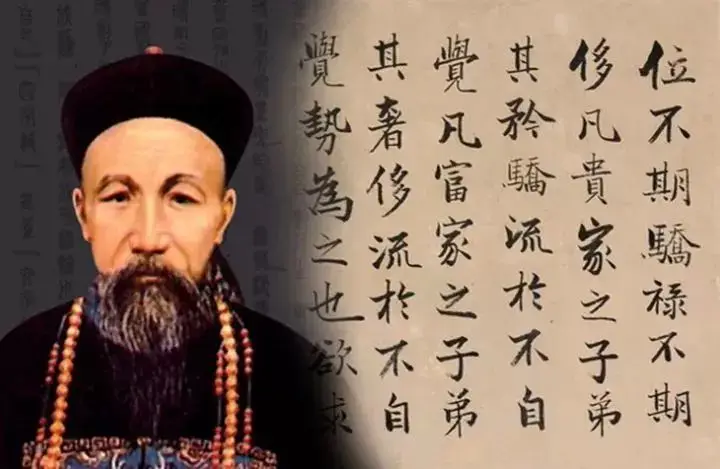 位不期驕祿不期
侈凡貴家之子弟
其矜驕流於不自
覺凡富家之子弟
其奢侈流於不自
覺勢為之也欲求